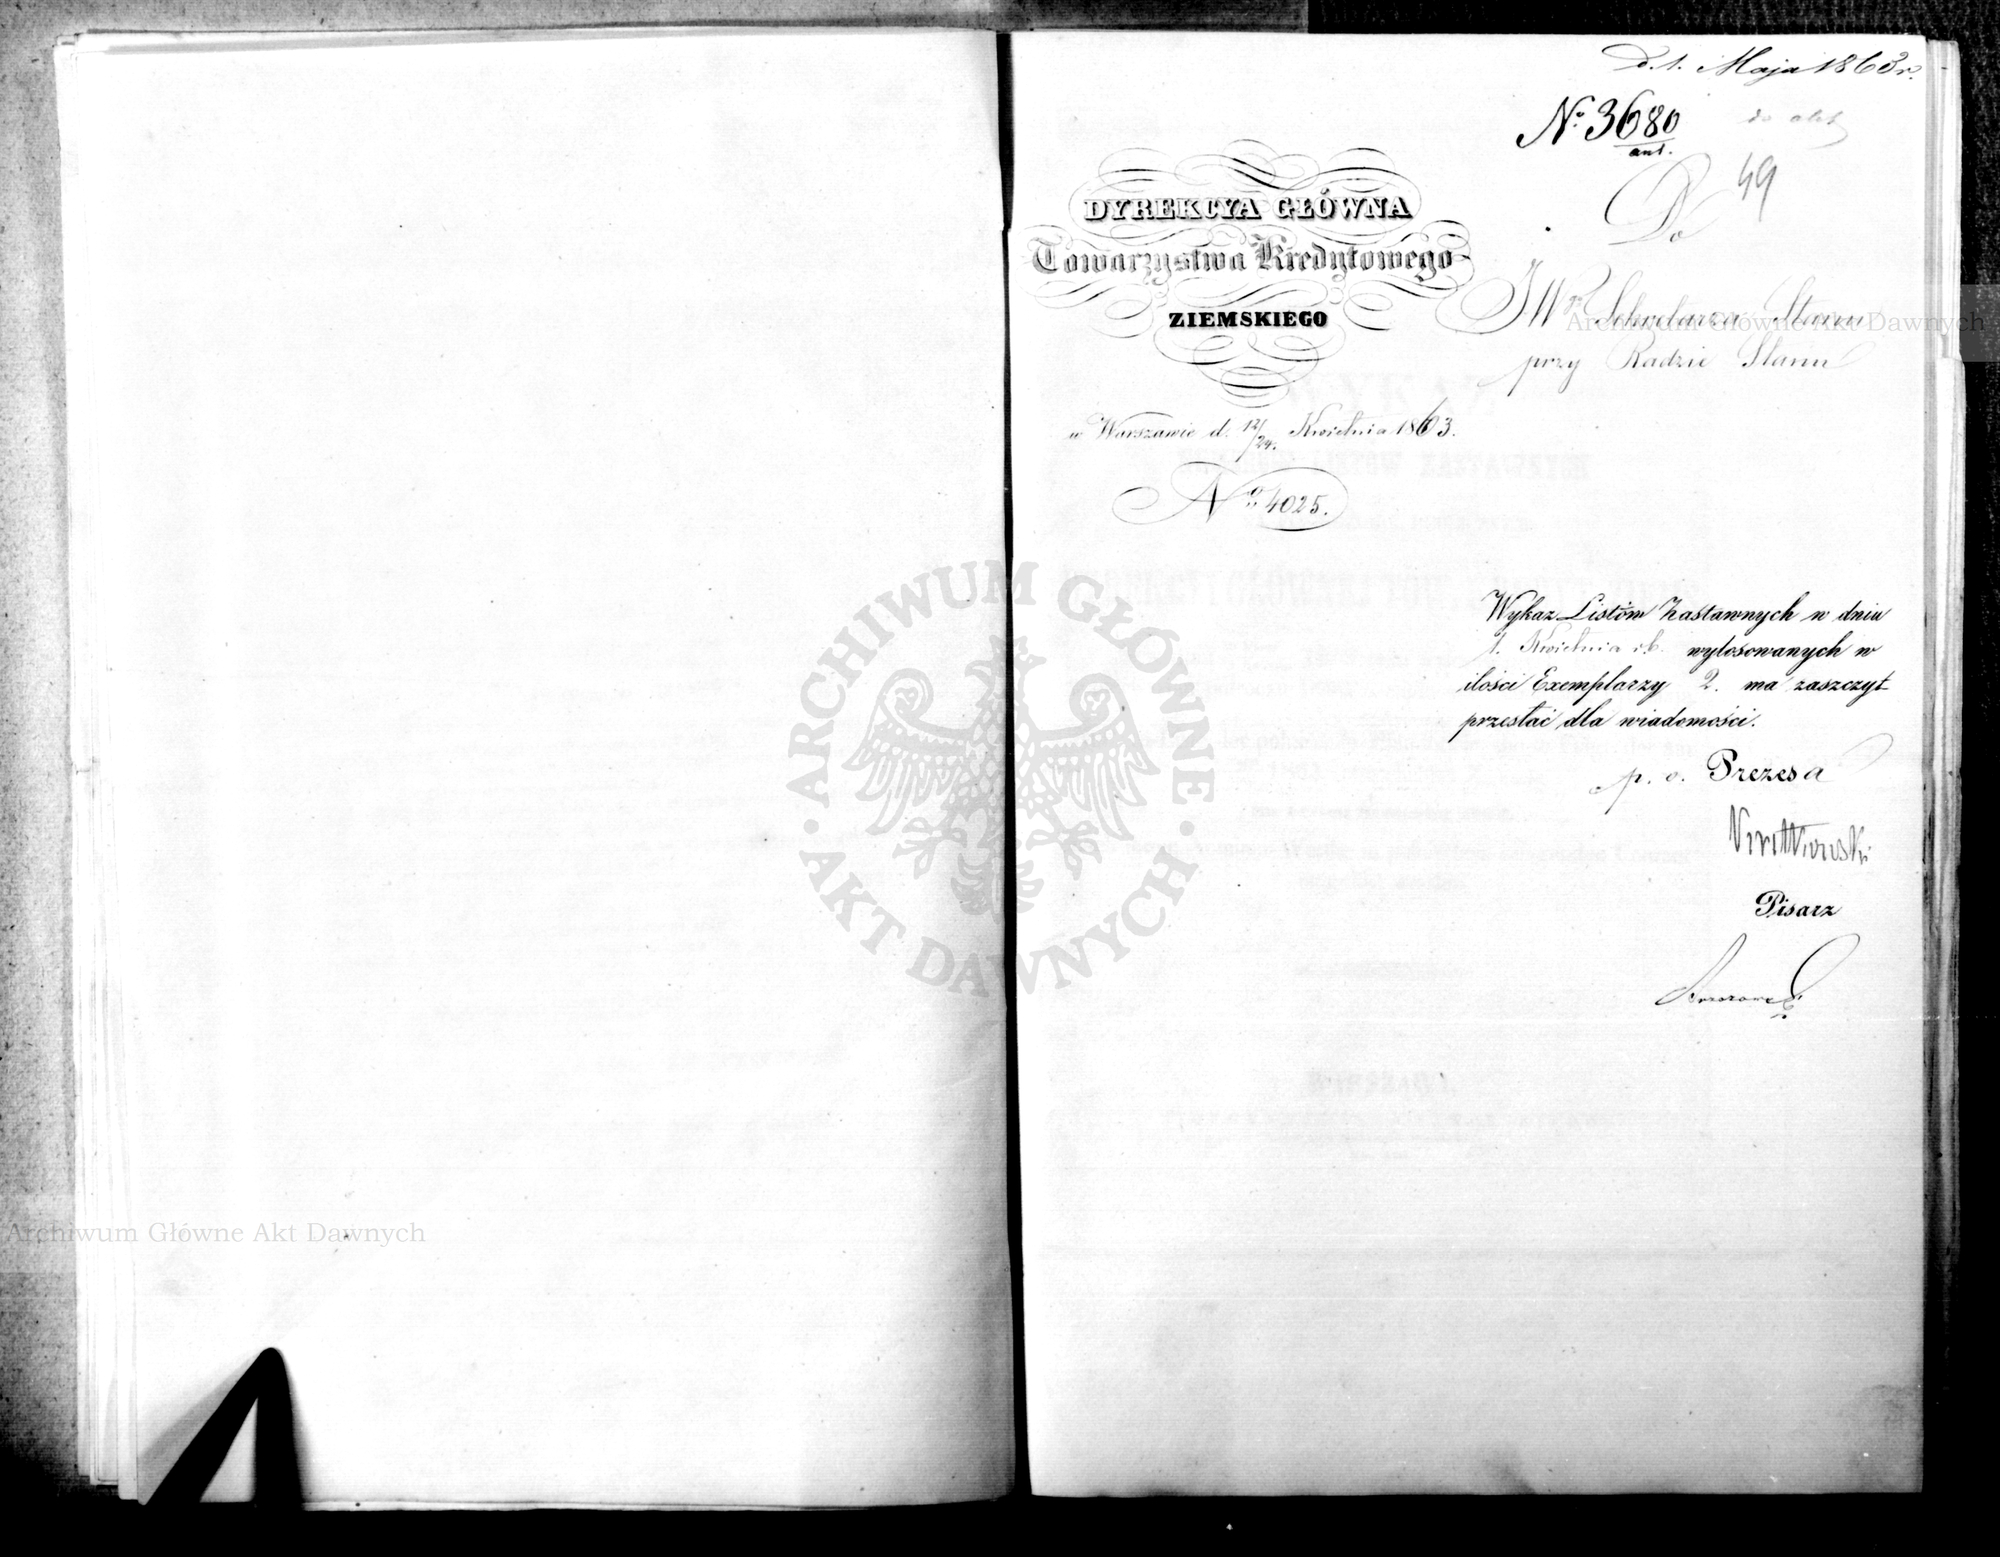 d. 1. Maja 1863 r.
No 3680
ant.
do akt
49
DYREKCYA GŁÓWNA
Towarzystwa Kredytowego
ZIEMSKIEGO
Do
JWo Sekretarza Stanu
przy Radzie Stanu
w Warszawie d. 12/24. Kwietnia 1863.
No 4025.
Wykaz Listów Zastawnych w dniu
1. Kwietnia r.b. wylosowanych w
ilości Exemplarzy 2. ma zaszczyt
przesłać dla wiadomości.
p. o. Prezesa
Pisarz
ARCHIWUM GŁÓWNE
AKT DAWNYCH
Archiwum Główne Akt Dawnych
Archiwum Główne Akt Dawnych